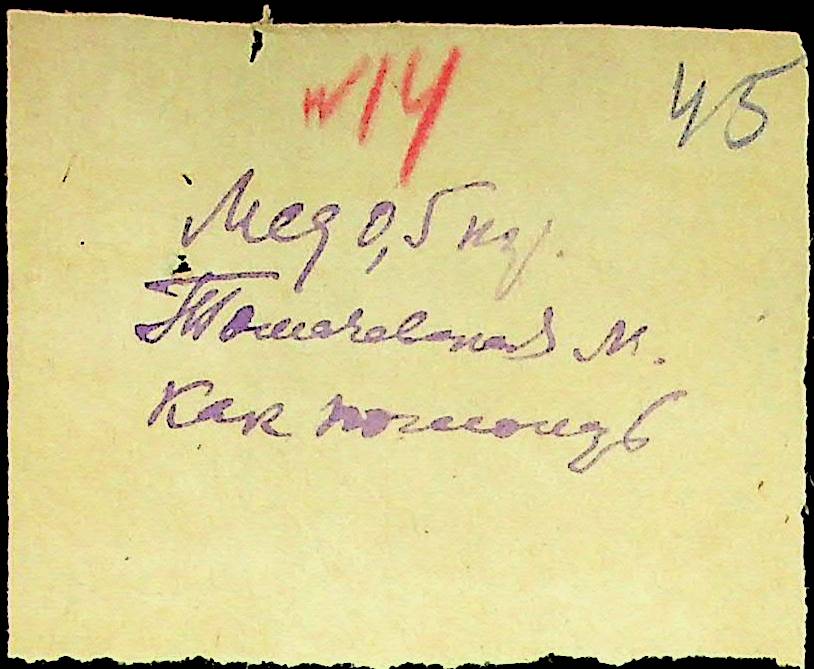 №14 45
Мед 0,5 кгр.
Томачевская М.
Как помощь